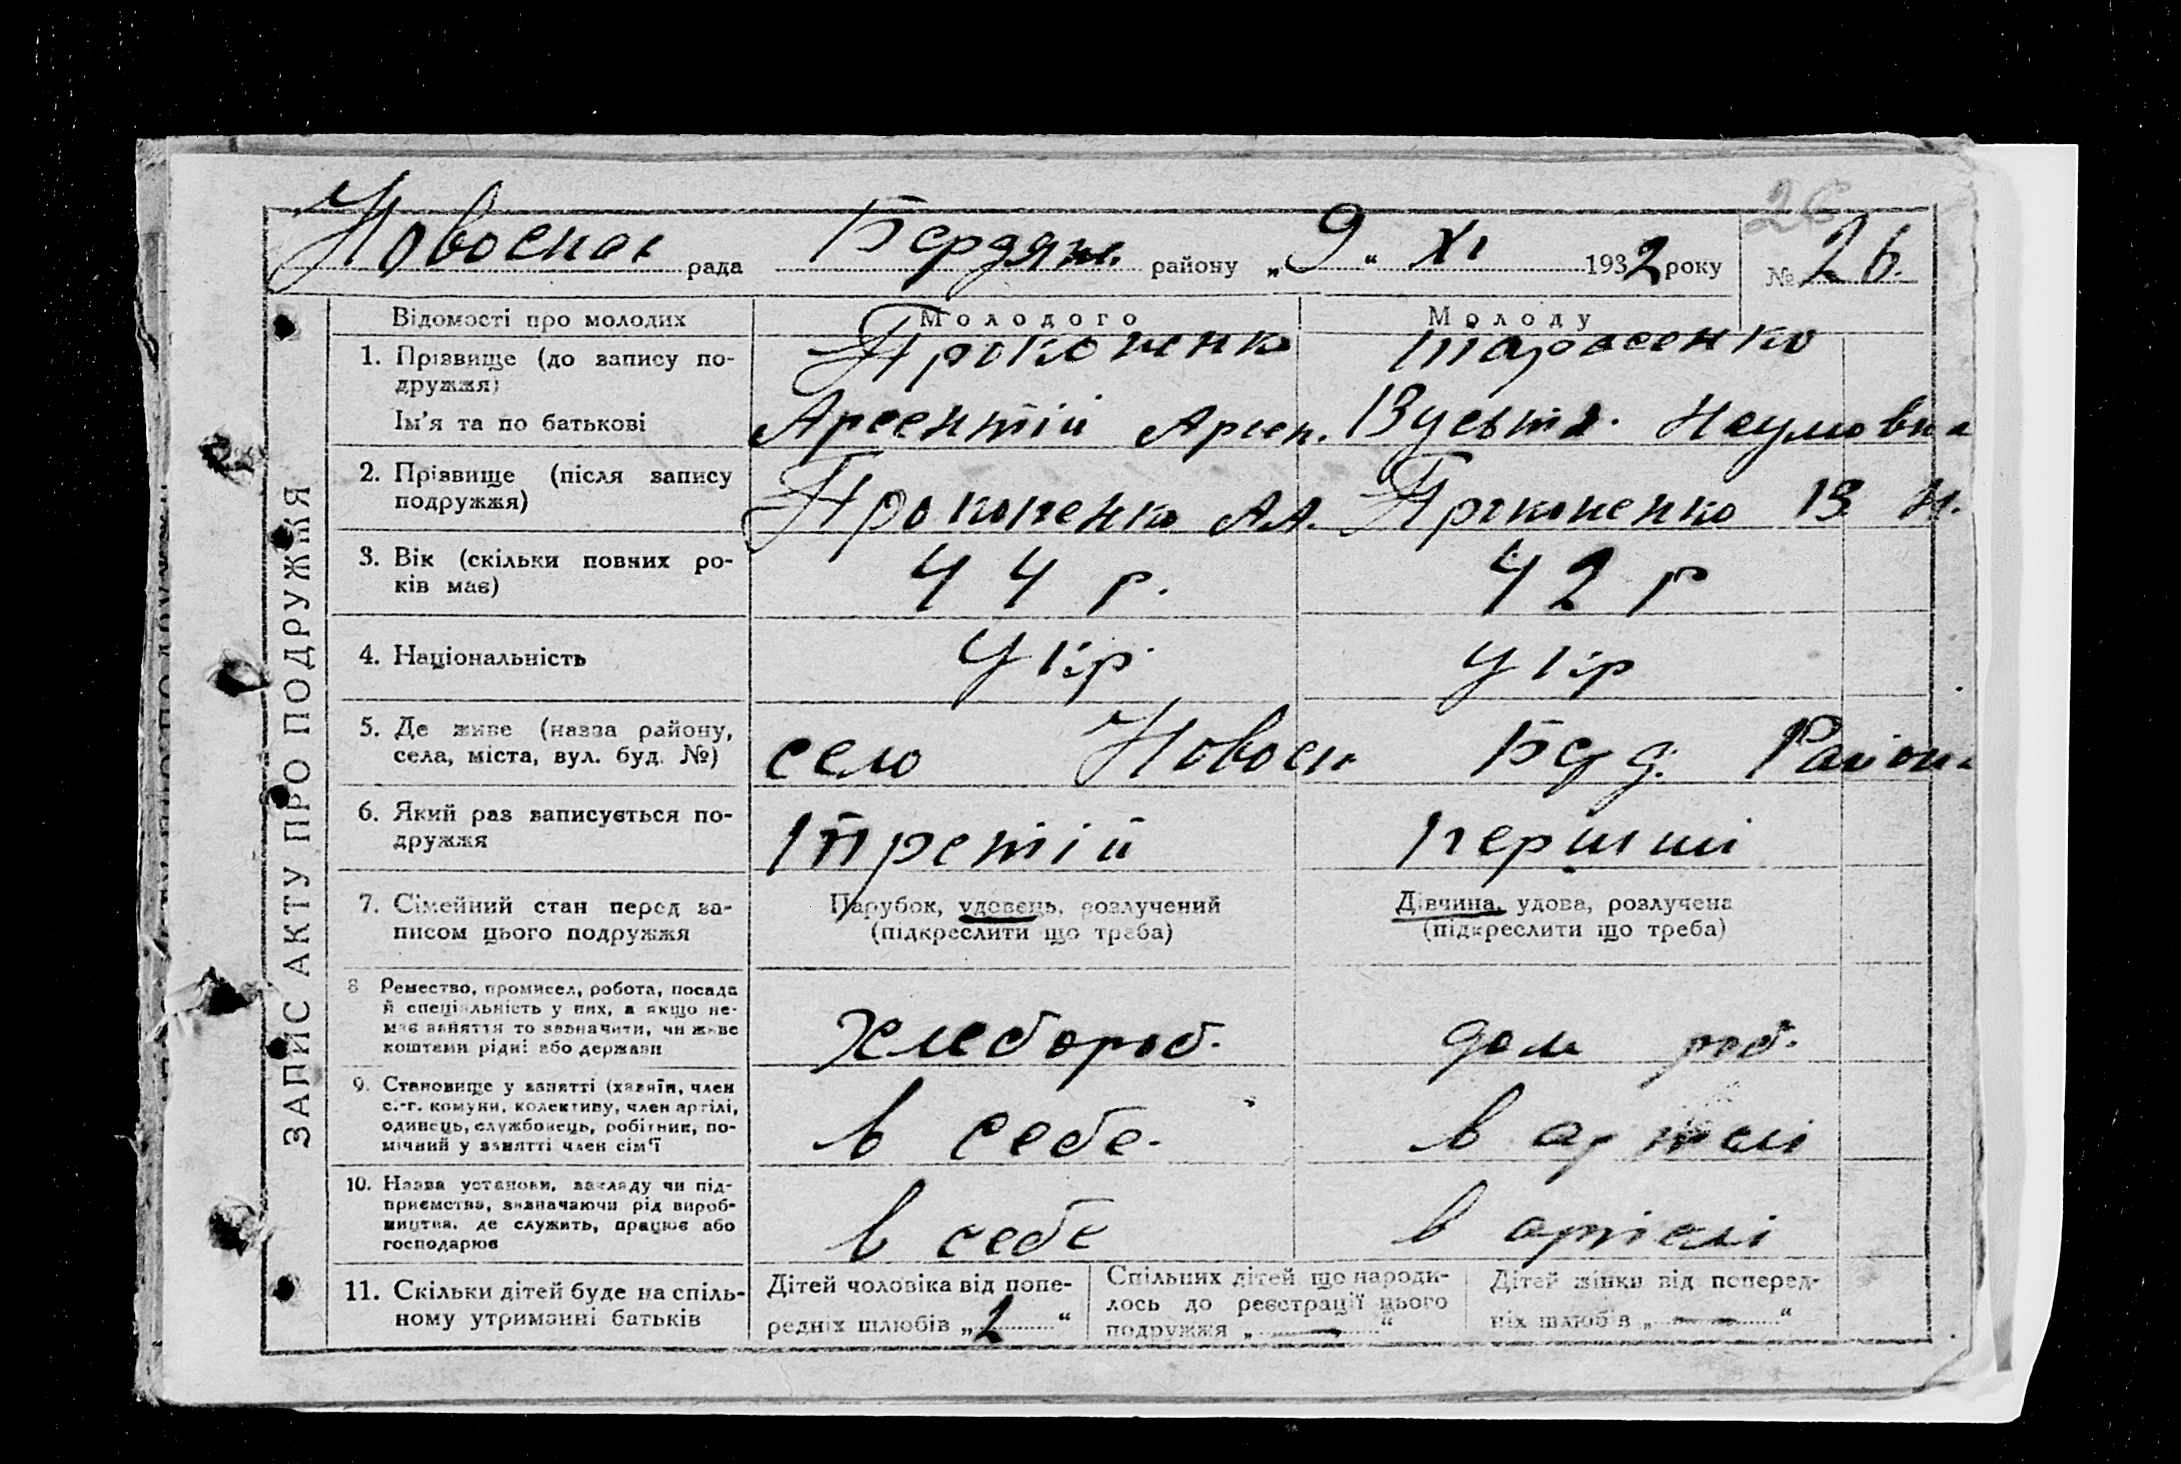 26
Новоспас рада Бердянс. району „9“ XI 1932 року № 26.
ЗАПИС АКТУ ПРО ПОДРУЖЖЯ
Відомості про молодих Молодого Молоду
1. Прізвище (до запису по-
дружжя) Прокопенко Тарасенко
Ім'я та по батькові Арсентій Арсен. Наумовна
2. Прізвище (після запису
подружжя) Прокопенко А.А. Прокопенко В. Н.
3. Вік (скільки повних ро-
ків має) 44 р. 42 р
4. Національність Укр. Укр
5. Де живе (назва району,
села, міста, вул. буд. №) село Новосп Берд. Район.
6. Який раз записується по-
дружжя третій перший
7. Сімейний стан перед за-
писом цього подружжя
Парубок, удовець, розлучений
(підкреслити що треба)
Дівчина, удова, розлучена
(підкреслити що треба)
8 Ремество, промисел, робота, посада
й спеціяльність у них, а якщо не-
має заняття то зазначити, чи живе
коштами рідні або держави Хлебороб. дом роб.
9. Становище у занятті (хазяїн, член
с.-г. комуни, колективу, член артілі,
одинець, службовець, робітник, по-
мічний у занятті член сім'ї в себе. в артелі
10. Назва установи, закладу чи під-
приємства, зазначаючи рід вироб-
ництва, де служить, працює або
господарює в себе в артелі
11. Скільки дітей буде на спіль-
ному утриманні батьків
Дітей чоловіка від попе-
редніх шлюбів „2“
Спільних дітей що народи-
лось до реєстрації цього
подружжя „—“
Дітей жінки від поперед-
ніх шлюбів „—“